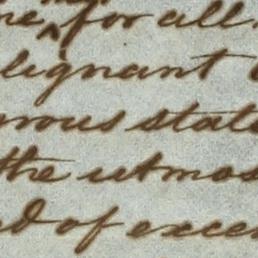 for all
lignant
rous stat
the utmos
d of exce